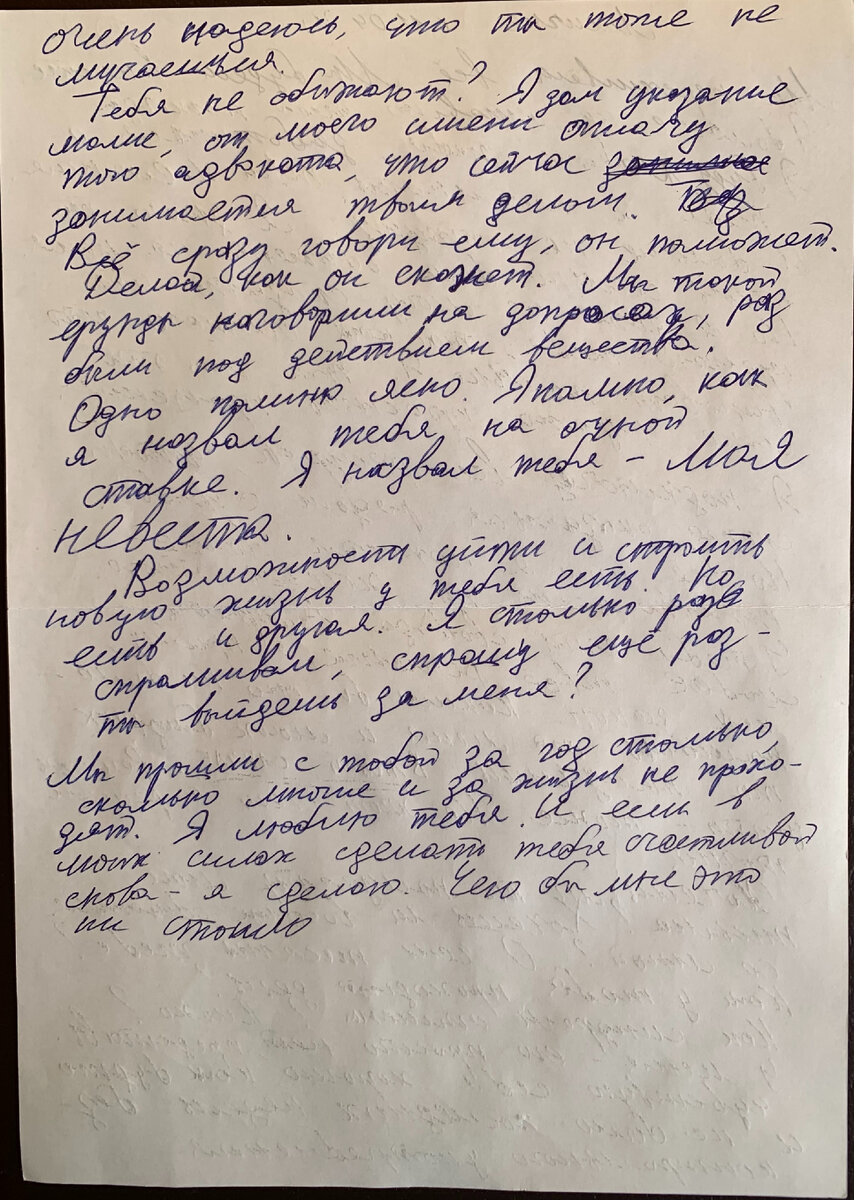 очень надеюсь, что ты тоже не
мучаешься.
Тебя не обижают? Я дам указание
маме, от моего имени оплачу
того адвоката, что сейчас
занимается твоим делом.
Всё сразу говори ему, он поможет.
Делай, как он скажет. Мы такой
ерунды наговорили на допросах, раз
были под действием вещества.
Одно помню ясно. Я помню, как
я назвал тебя на очной
ставке. Я назвал тебя - Моя
невеста.
Возможность уйти и строить
новую жизнь у тебя есть. Но
есть и другая. Я столько раз
спрашивал, спрошу ещё раз -
ты выйдешь за меня?
Мы прошли с тобой за год столько,
сколько многие и за жизнь не прохо-
дят. Я люблю тебя. И если в
моих силах сделать тебя счастливой
снова - я сделаю. Чего бы мне это
ни стоило